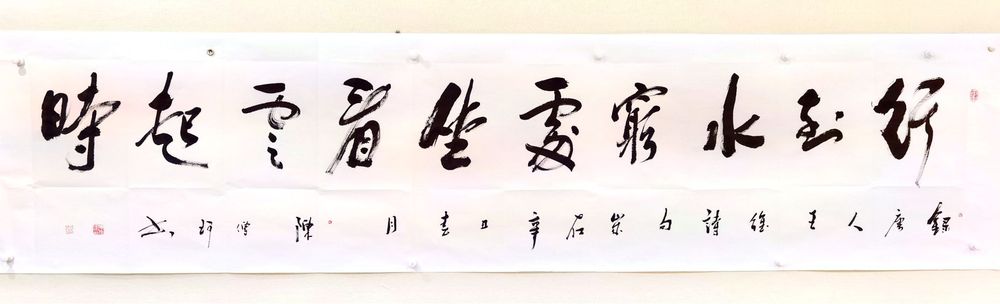 行到水窮處坐看雲起時
錄唐人王維詩句崇石辛丑春月陳偉珂書